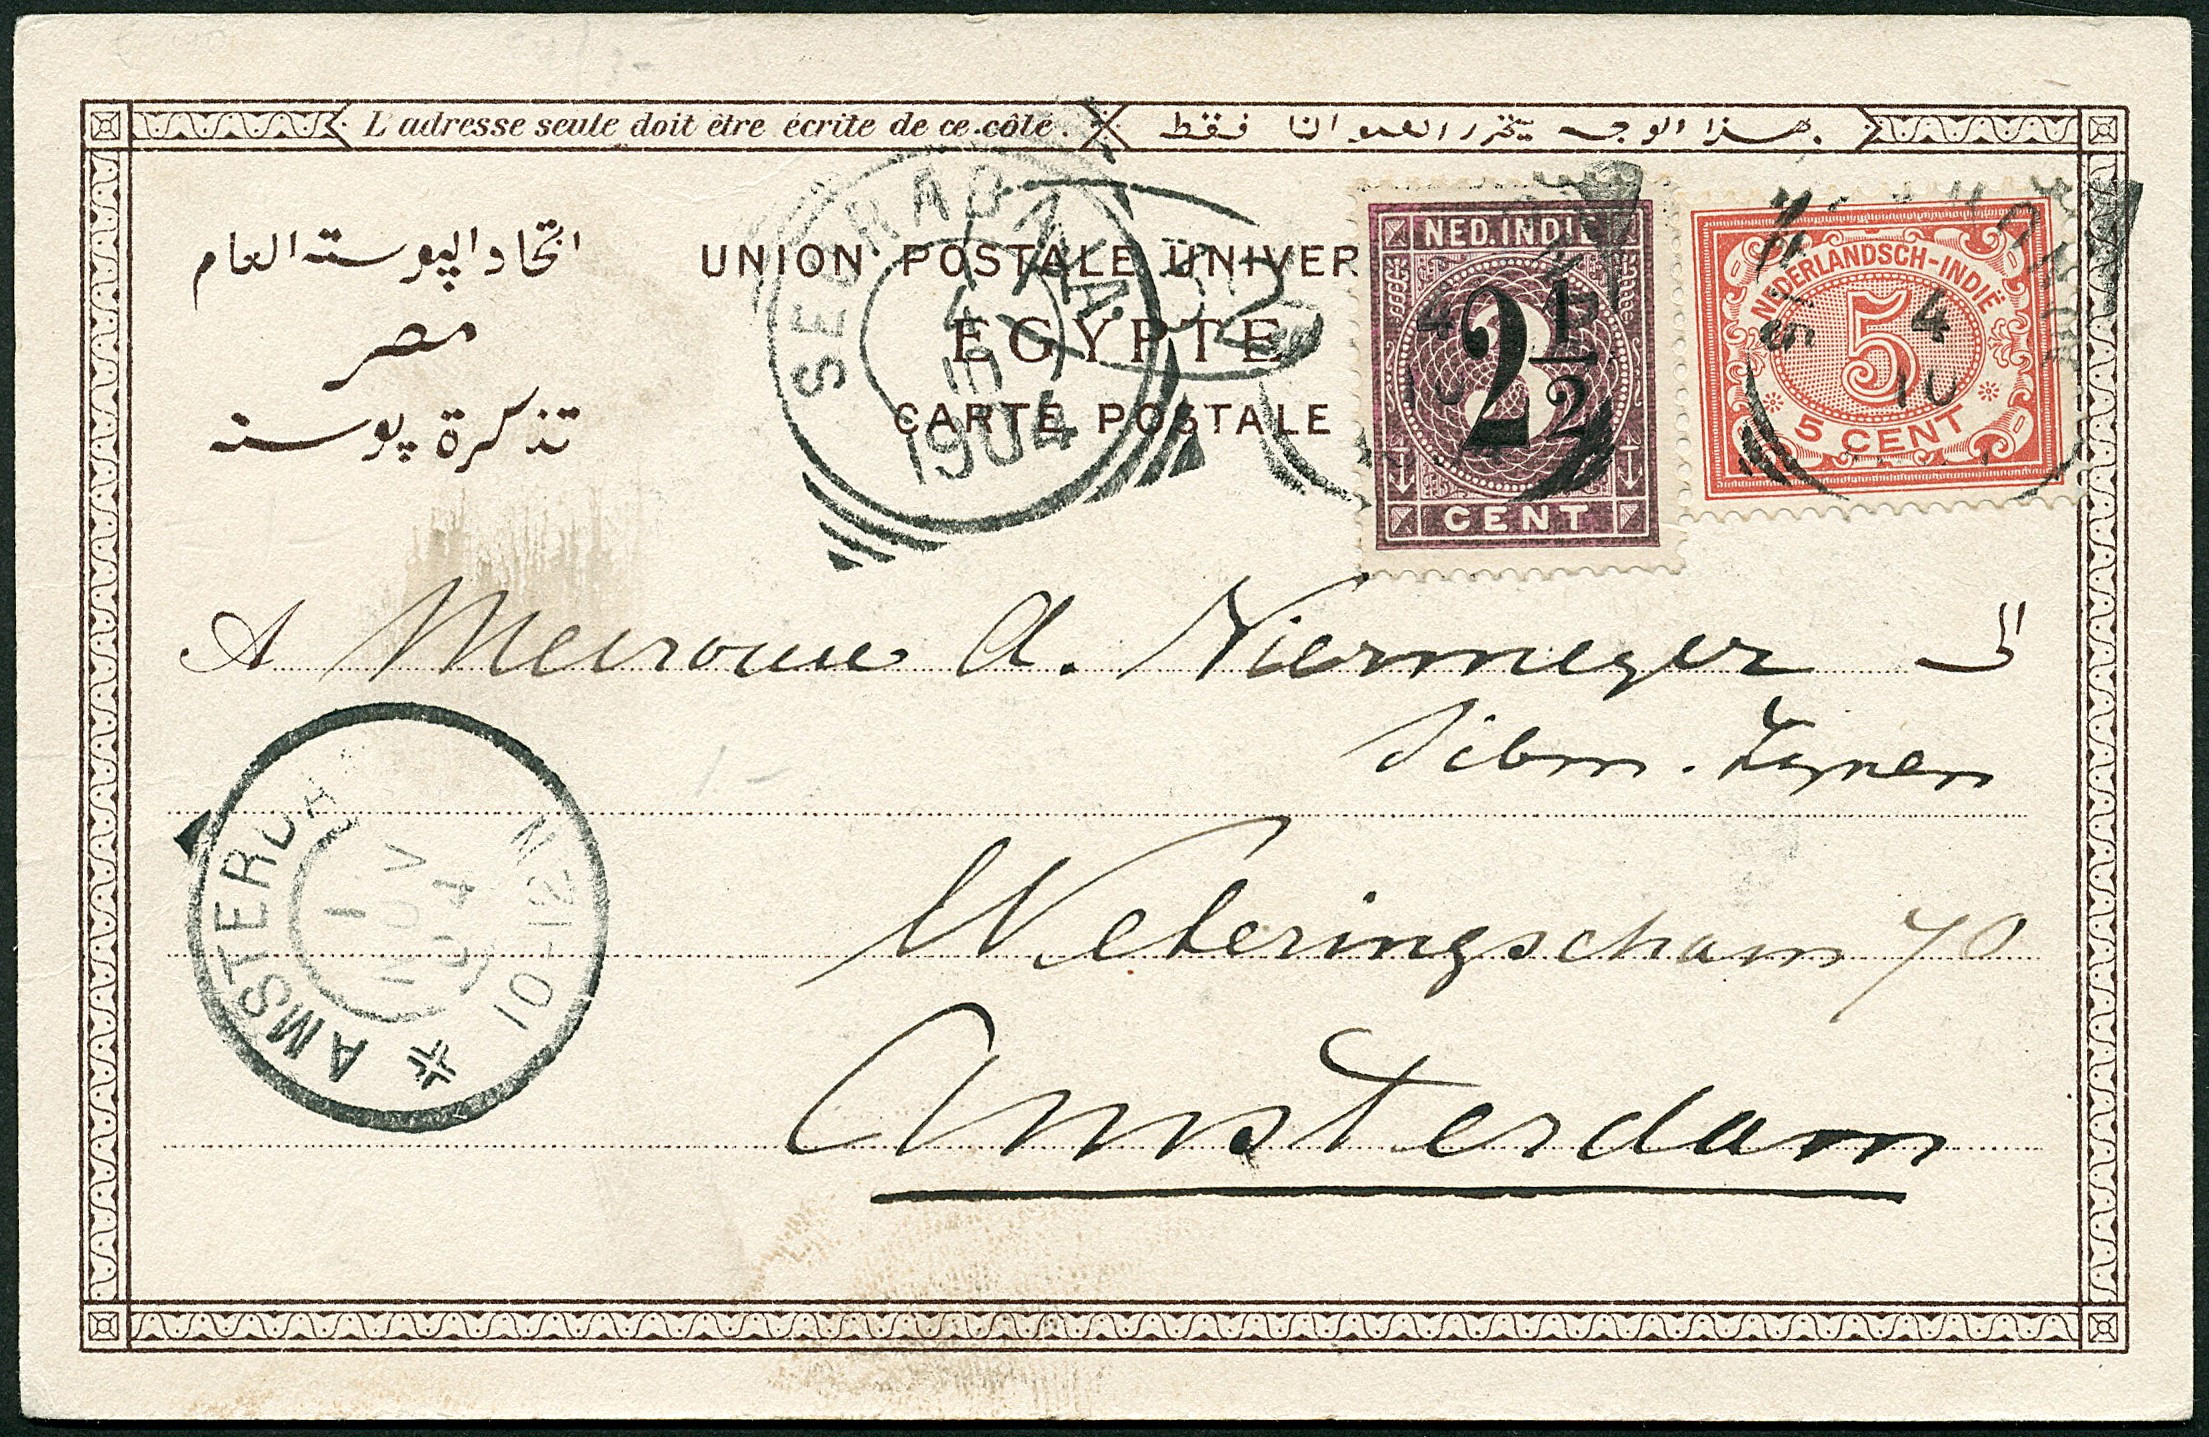 L'adresse seule doit être écrite de ce côté.
هذا الوجه يتحرر العنوان فقط
UNION POSTALE UNIVER
EGYPTE
CARTE POSTALE
اتحاد البوسته العام
مصر
تذكرة بوسته
SOERABAJA
4
10
1904
NED.INDIE
2½
CENT
4
10
NEDERLANDSCH-INDIË
5
5 CENT
4
10
A Mevrouw A. Niermeyer
الى
Weteringschans 70
Amsterdam
AMSTERDAM
10-12 N
1
NOV
04